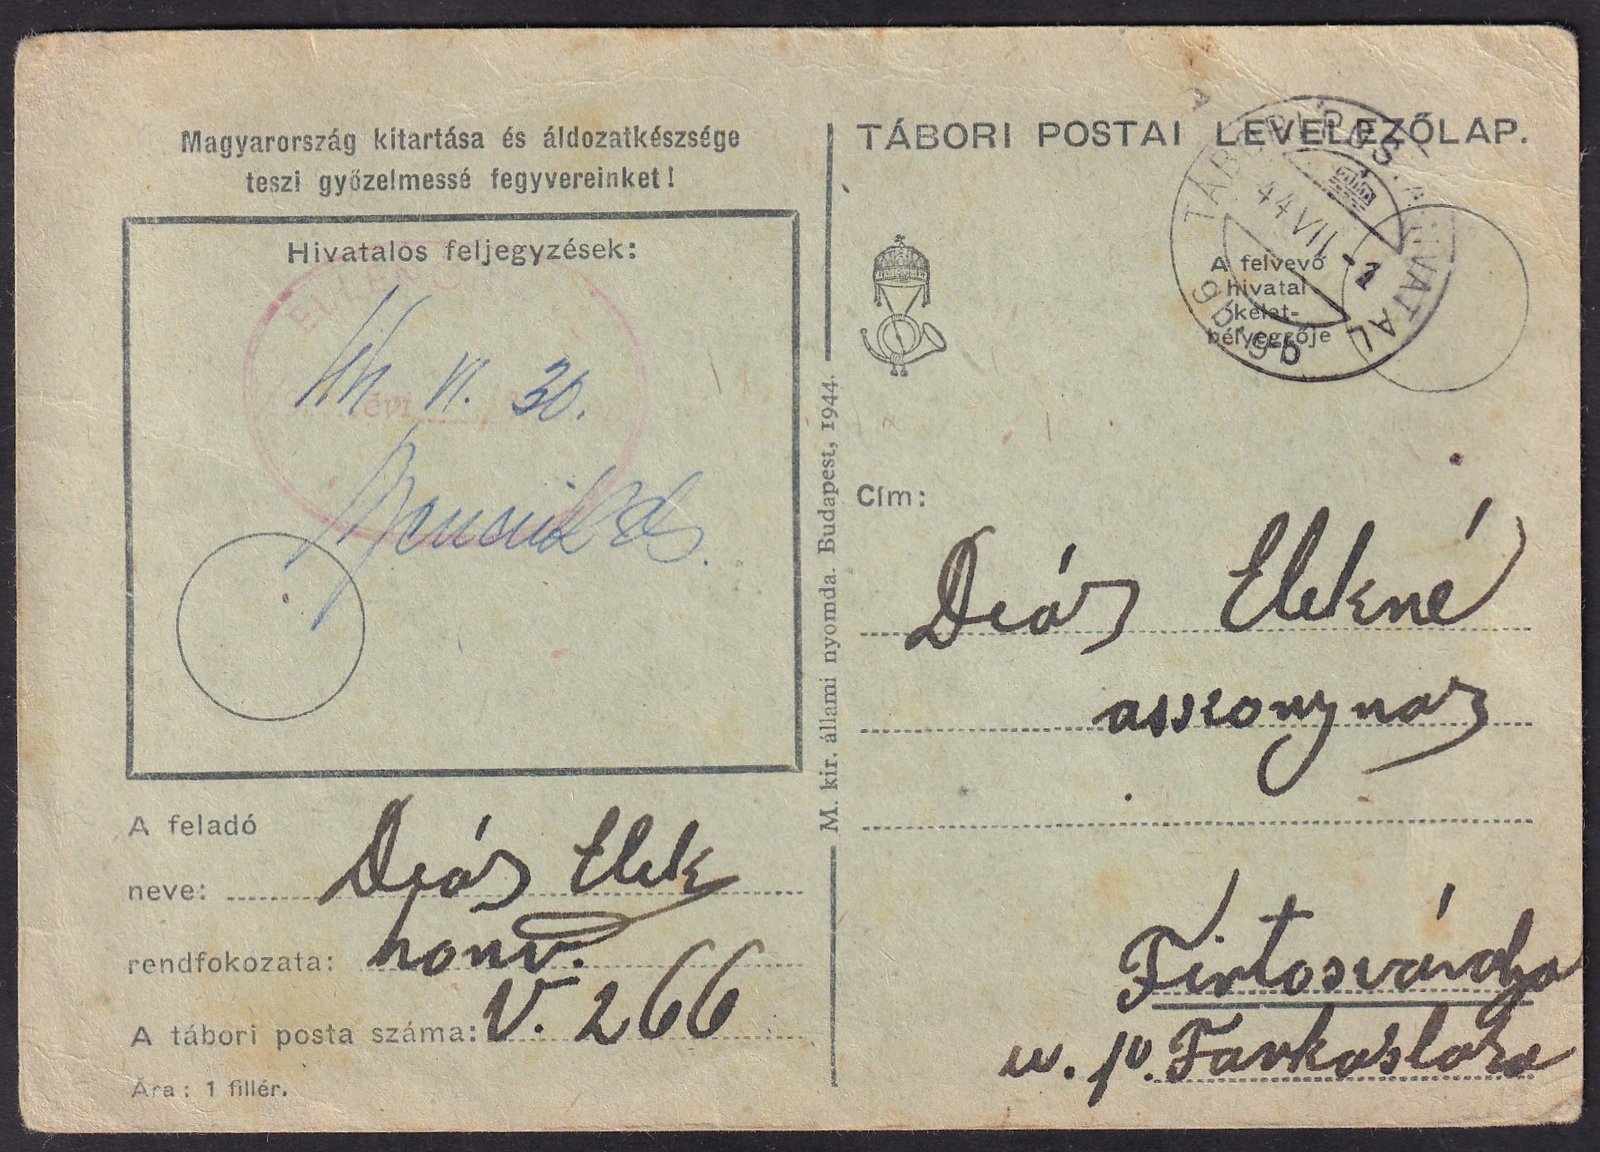 Magyarország kitartása és áldozatkészsége
teszi győzelmessé fegyvereinket!
Hivatalos feljegyzések:
ELLEN
évi
44 VI. 30.
A feladó
neve: Deák Elek
rendfokozata: honv.
A tábori posta száma: V. 266
Ára: 1 fillér.
M. kir. állami nyomda. Budapest, 1944.
TÁBORI POSTAI LEVELEZŐLAP.
44 VII -1
A felvevő
hivatal
kelet-
bélyegzője
Cím:
Deák Elekné
asszonynak
Firtosváralja
u. p. Farkaslaka